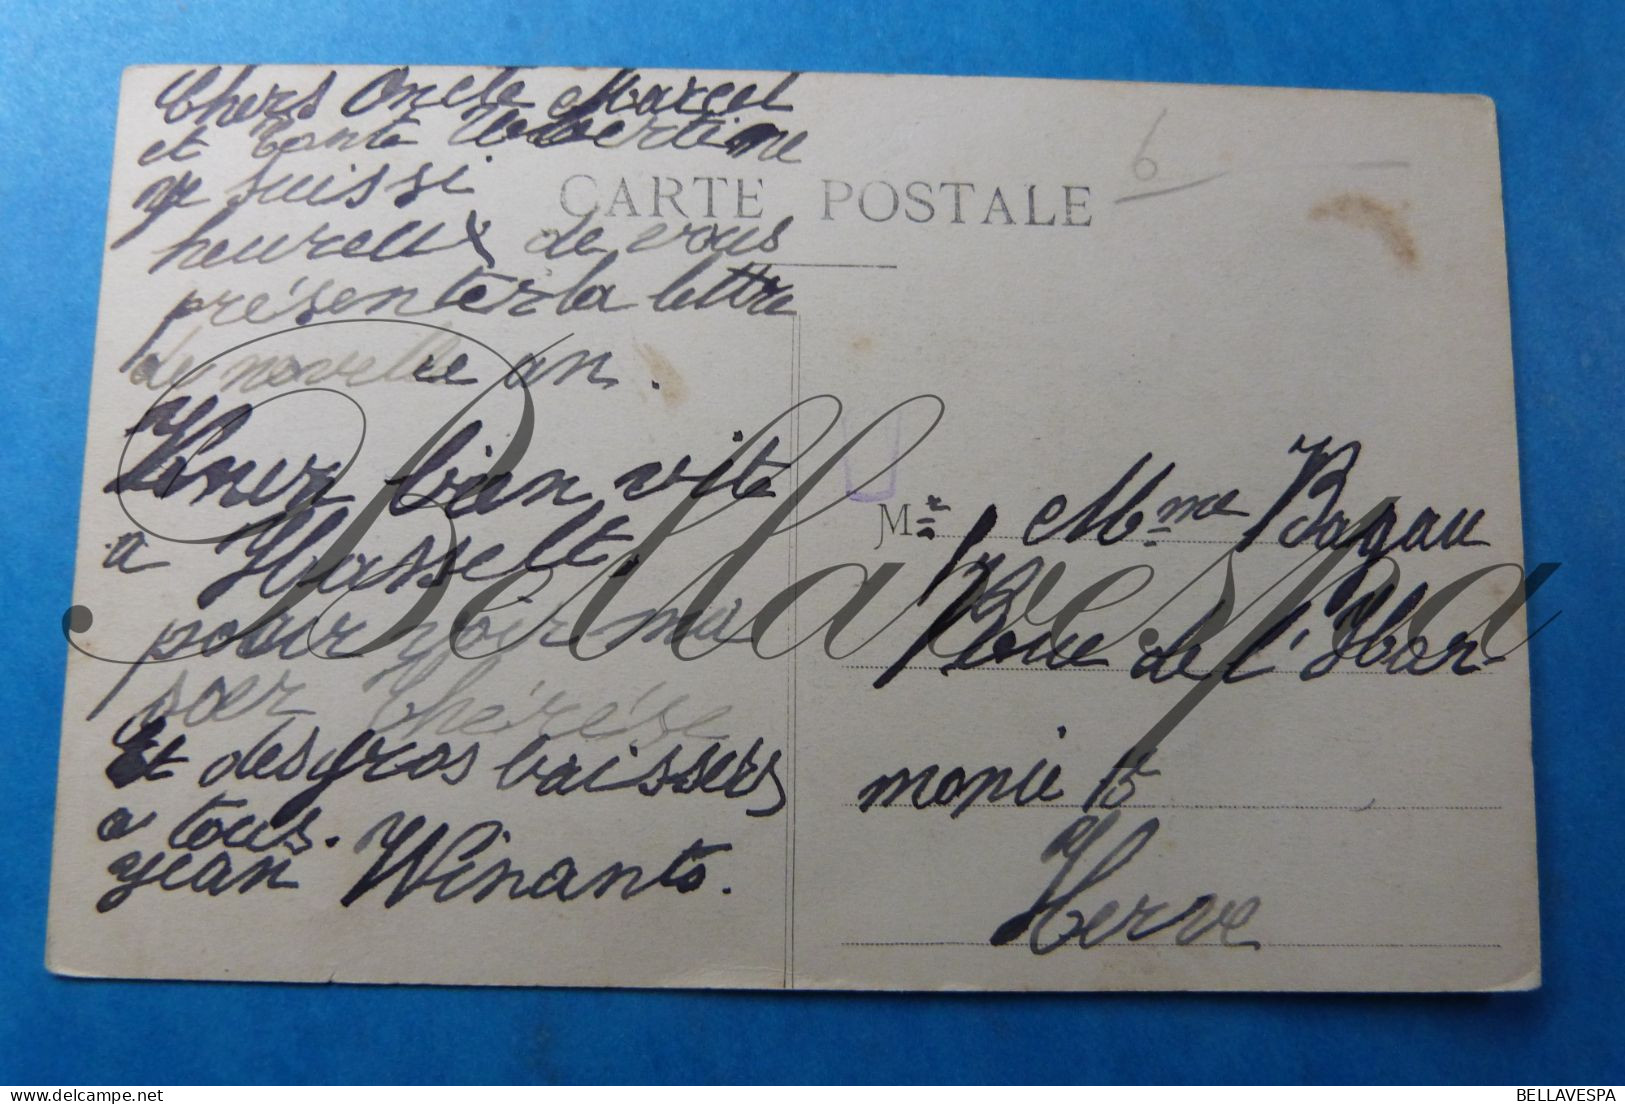 Chers Oncle Marcel
et Tante Albertine
je suissi
heureux de vous
présenter la lettre
de novelle an.
Vener bien vite
a Hasselt.
pour voir ma
soer Thérése
Et des gros baissers
a tous.
Jean Winants.
CARTE POSTALE
6
M r Mme Bagau
Rue de l'Har-
monie 15
Herve
Bellavespa
BELLAVESPA